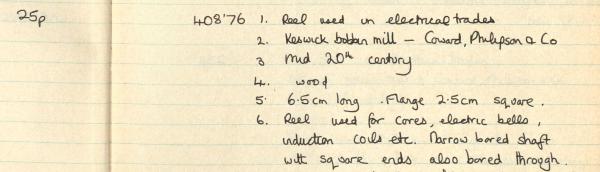 25p 408'76 1. Reel used in electrical trades
2. Keswick bobbin mill - Coward, Philipson & Co
3 Mid 20th century
4. wood
5. 6.5cm long. Flange 2.5cm square.
6. Reel used for cores, electric bells,
induction coils etc. Narrow bored shaft
with square ends also bored through.